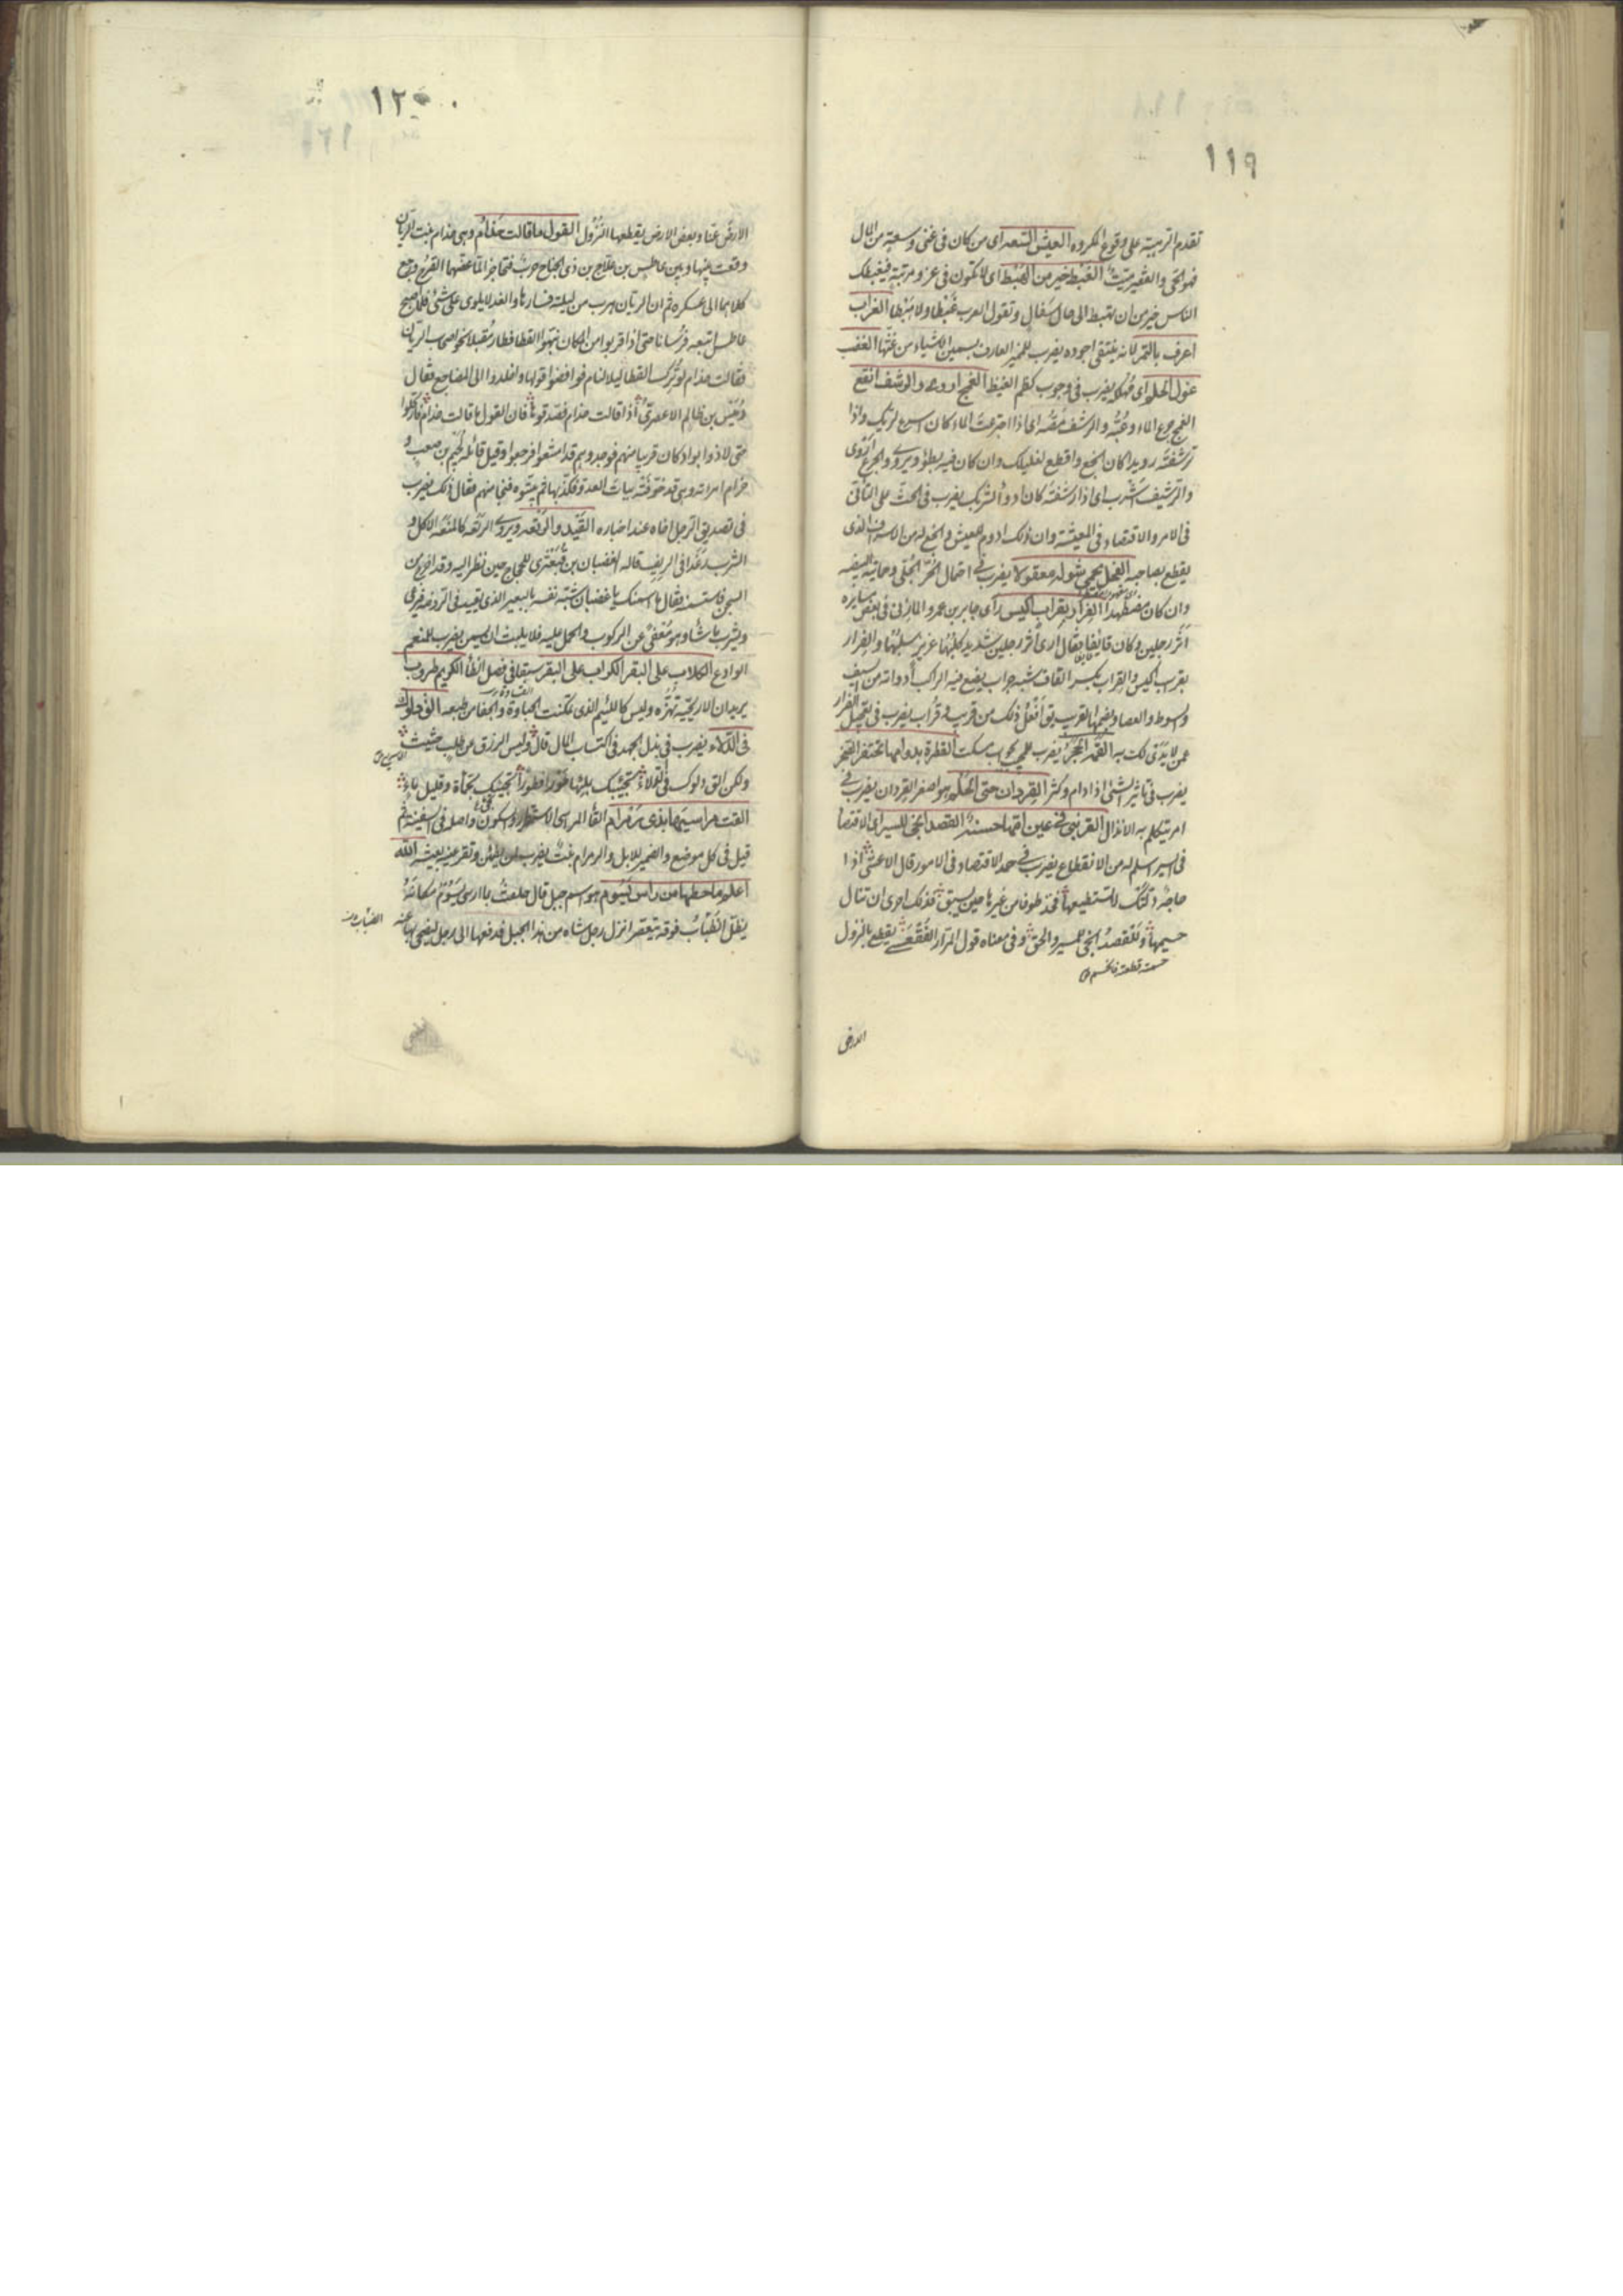 ١١٩
تقدم التربية على وقوع المكروه العيش السعه اى من كان فى غنى وسعة من المال
فهو الحى والفقير ميّت الغبط خير من الهبط اى لا تكون فى عز ومرتبة فيغبطك
الناس خير من ان تهبط الى حال سفال وتقول العرب غبطا ولا هبطا الغراب
اعرف بالتمر لانه ينتقى اجوده يضرب للخبير العارف بسمين الاشياء من غثها الغضب
غول الحلم اى مُهلكه يضرب فى وجوب كظم الغيظ الغمج اروى والرشف انقع
الغمج جرع الماء وعبّه والرشف مصّه اى اذا اجترعت الماء كان اسرع لريّك واذا
ترشفته رويدا كان انجع واقطع لغليلك وان كان فيه بطؤ ويروى والجرع اروى
والرشيف شرب اى اذا رشفته كان ادوأ لشربك يضرب فى الحث على التأنى
فى الامر والاقتصاد فى المعيشة وان ذلك ادوم للعيش وانجع له من الاسراف الذى
يقطع بصاحبه الفحل يحمى شوله معقولا يضرب فى احتمال الحر الجلى وحمايته لضيفه
وان كان مضطهدا الفرار بقراب اكيس رأى جابر بن عمرو المازنى فى بعض مسايره
اثر رجلين وكان قائفا فقال ارى اثر رجلين شديد كلبهما عزيز سلبهما والفرار
بقراب اكيس والقراب بكسر القاف شبه جراب يضع فيه الراكب أدواته من سيف
وسوط والعصا وبضمها القريب يق افعل ذلك من قريب وقراب يضرب فى تعجيل الفرار
عمن لا يدى لك به
يضرب فى تأثير الشئ اذا دام وكثر القردان حتى الحلم هو اصغر القردان يضرب فى
امر يتكلم به الانذال القرنبى فى عين امّها حسنة القصد انجى للسير اى الاقتصاد
فى السير اسلم له من الانقطاع يضرب فى حمد الاقتصاد فى الامور قال الاعشى اذا
حاجة ولّتك لا تستطيعها فخذ طرفا من غيرها حين يسبق فذلك احرى ان تنال
جسيمها وللقصد انجى للمسير والحق وفى معناه قول المرّار الفقعسى يقطع بالنزول
الارض
١٢٠
الارض عنا وبعض الارض يقطعها النزول القول ما قالت حذام وهى حذام بنت الريّان
وقعت بينها وبين عاطس بن علاج بن ذى الجناح حرب فتحاجزا لما عضّهما القرح ورجع
كلاهما الى عسكره ثم ان الريّان هرب من ليلته فسارها والغد لا يلوى على شئ فلما اصبح
عاطس اتبعه فرسانا حتى اذا قربوا من المكان نبّهوا القطا فطار مُقبلا نحو اصحاب الريّان
فقالت حذام لو تُرِك القطا ليلا لنام فرافضوا قولها واخلدوا الى المضاجع فقال
دُمَيس بن ظالم الاعصرىّ اذا قالت حذام فصدّقوها فان القول ما قالت حذام فارتحلوا
حتى لاذوا بواد كان قريبا منهم فوجدوهم قد امتنعوا فرجعوا وقيل قائله لُجَيم بن صعب و
حذام امراته وهى قد خوّفته بيات العدو فكذّبها ثم بيّتوه فنجا منهم فقال ذلك يضرب
فى تصديق الرجل اخاه عند اخباره القيد والرتعه ويروى الرتعه كالمنعه الاكل و
الشرب رغدا فى الريف قاله لغضبان بن قبعثرى للحجاج حين نظر اليه وقد اخرج من
السجن فاستسمنه فقال ما اسمنك يا غضبان شبّه نفسه بالبعير الذى تقيد فى الروضة فرعى
ويشرب ما شاء وهو مُعفى عن الركوب والحمل عليه فلا يلبث ان يسمن يضرب للمنعم
الوادع الكلاب على البقر الكراب على البقر سبقا فى فصل الظأ الكريم طروب
يريد ان الاريحيّه تهزّه وليس كاللئيم الذى تمكنت الجساوة والجفا من طبعه الق دلوك
فى الدلاء يضرب فى بذل الجهد فى اكتساب المال قال وليس الرزق عن طلب حثيث
ولكن الق دلوك فى الدلاء تجئك بملئها طورا فطورا تجيك بحمأة وقليل ماء
القت مراسيها بذى رمرام القاء المراسى الاستقرار والسكون واصله فى السفينة ثم
قيل فى كل موضع والضمير للابل والرمرام نبت يضرب لمن يطمئن وتقر عينه بعيشه الله
اعلم ما حطها من راس يسوم هو اسم جبل قال حلفت بما ارسى يسوم مكانه
يظل الضّباب فوقه يتعصّر انزل رجل شاه من هذا الجبل فدفعها الى رجل ليضحى بها عنه